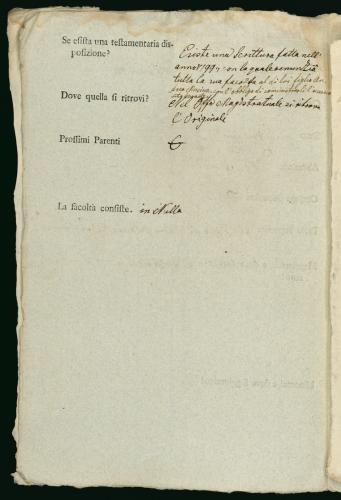 Se esista una testamentaria dis-
posizione?
Existe una Scrittura fatta nell
anno 1799 con la quale
tutta la sua facoltà al di lui figlio
con l'obbligo di
Dove quella si ritrovi?
Nel Offo Magistratuale si ritrova
l'Originale
Prossimi Parenti
La facoltà consiste. in Nulla